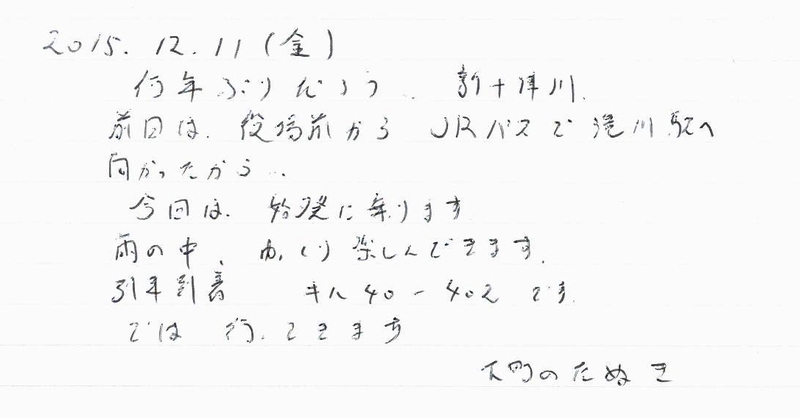 2015.12.11(金)
何年ぶりだろう、新十津川、
前回は、役場前から JRバスで滝川駅へ
向かったから…
今回は、始発に乗ります
雨の中、ゆっくり楽しんできます。
列車到着 キハ40-402 です
では 行ってきます
大門のたぬき